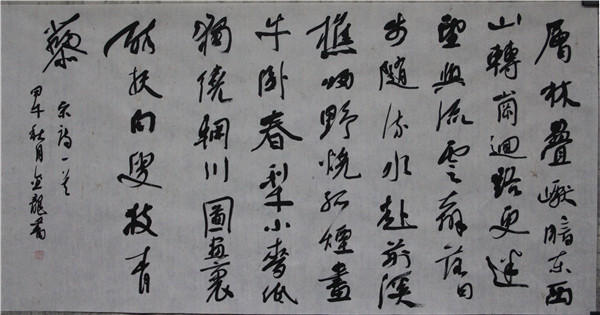 層林疊巘暗东西
山轉崗迴路更迷
望與流雲辭落日
步隨流水赴前溪
樵歸野燒孤煙盡
牛卧春犁小麥低
獨繞輞川圖畫裏
醉扶白叟杖青
藜
宋詩一首
甲午秋月 龍書